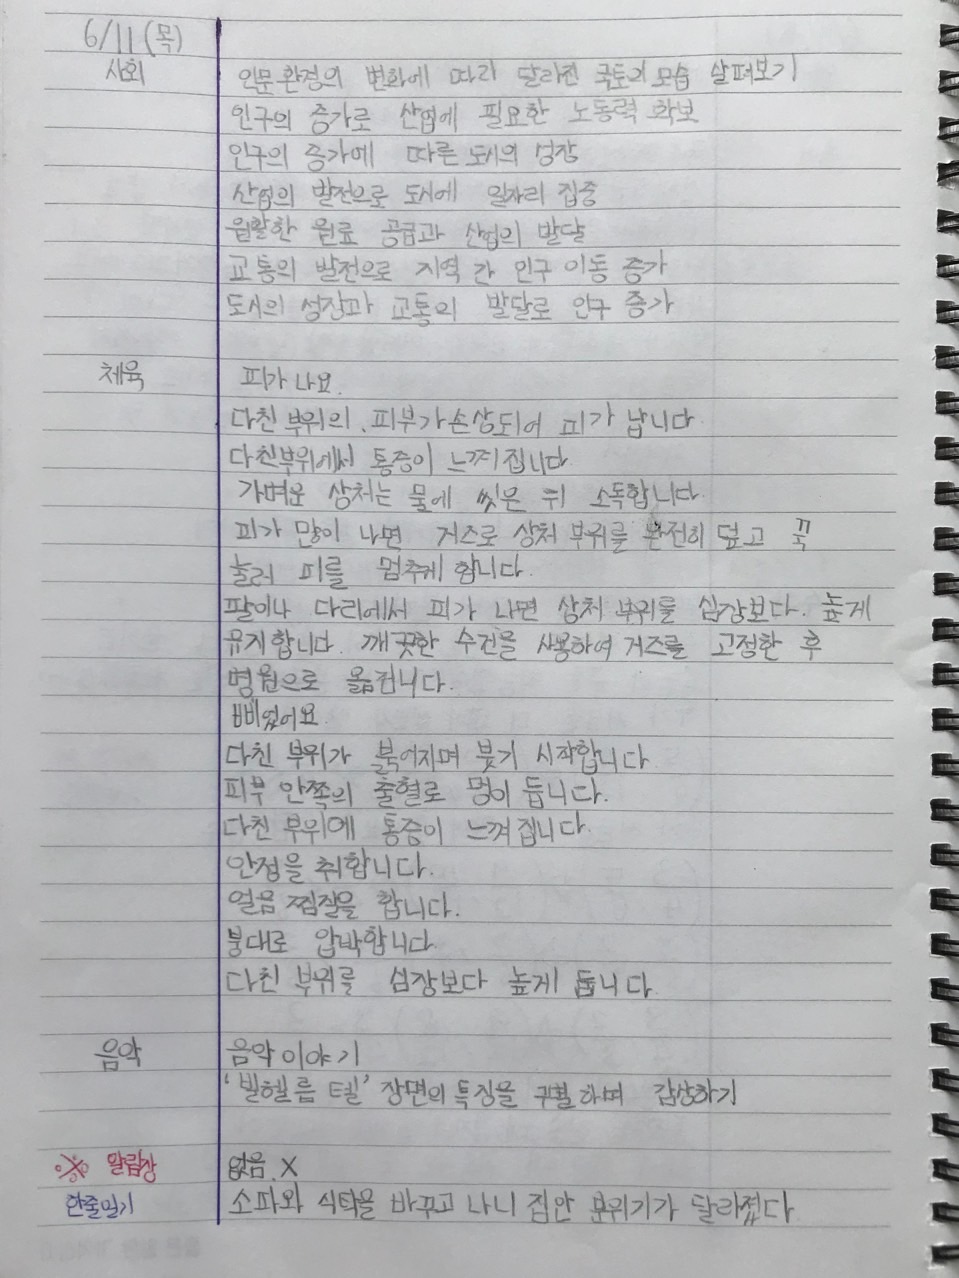 6/11(목)
사회 인문환경의 변화에 따라 달라진 국토의 모습 살펴보기
인구의 증가로 산업에 필요한 노동력 확보
인구의 증가에 따른 도시의 성장
산업의 발전으로 도시에 일자리 집중
원활한 원료 공급과 산업의 발달
교통의 발전으로 지역 간 인구 이동 증가
도시의 성장과 교통의 발달로 인구 증가
체육 피가 나요.
다친 부위의 피부가 손상되어 피가 납니다.
다친부위에서 통증이 느껴집니다.
가벼운 상처는 물에 씻은 뒤 소독합니다.
피가 많이 나면 거즈로 상처 부위를 완전히 덮고 꾹
눌러 피를 멈추게 합니다.
팔이나 다리에서 피가 나면 상처 부위를 심장보다. 높게
유지합니다. 깨끗한 수건을 사용하여 거즈를 고정한 후
병원으로 옮깁니다.
삐었어요.
다친 부위가 붉어지며 붓기 시작합니다
피부 안쪽의 출혈로 멍이 듭니다.
다친 부위에 통증이 느껴집니다.
안정을 취합니다.
얼음 찜질을 합니다.
붕대로 압박합니다.
다친 부위를 심장보다 높게 둡니다.
음악 음악이야기
'빌헬름 텔' 장면의 특징을 구별하며 감상하기
※ 알림장 없음. X
한줄일기 소파와 식탁을 바꾸고 나니 집안 분위기가 달라졌다.